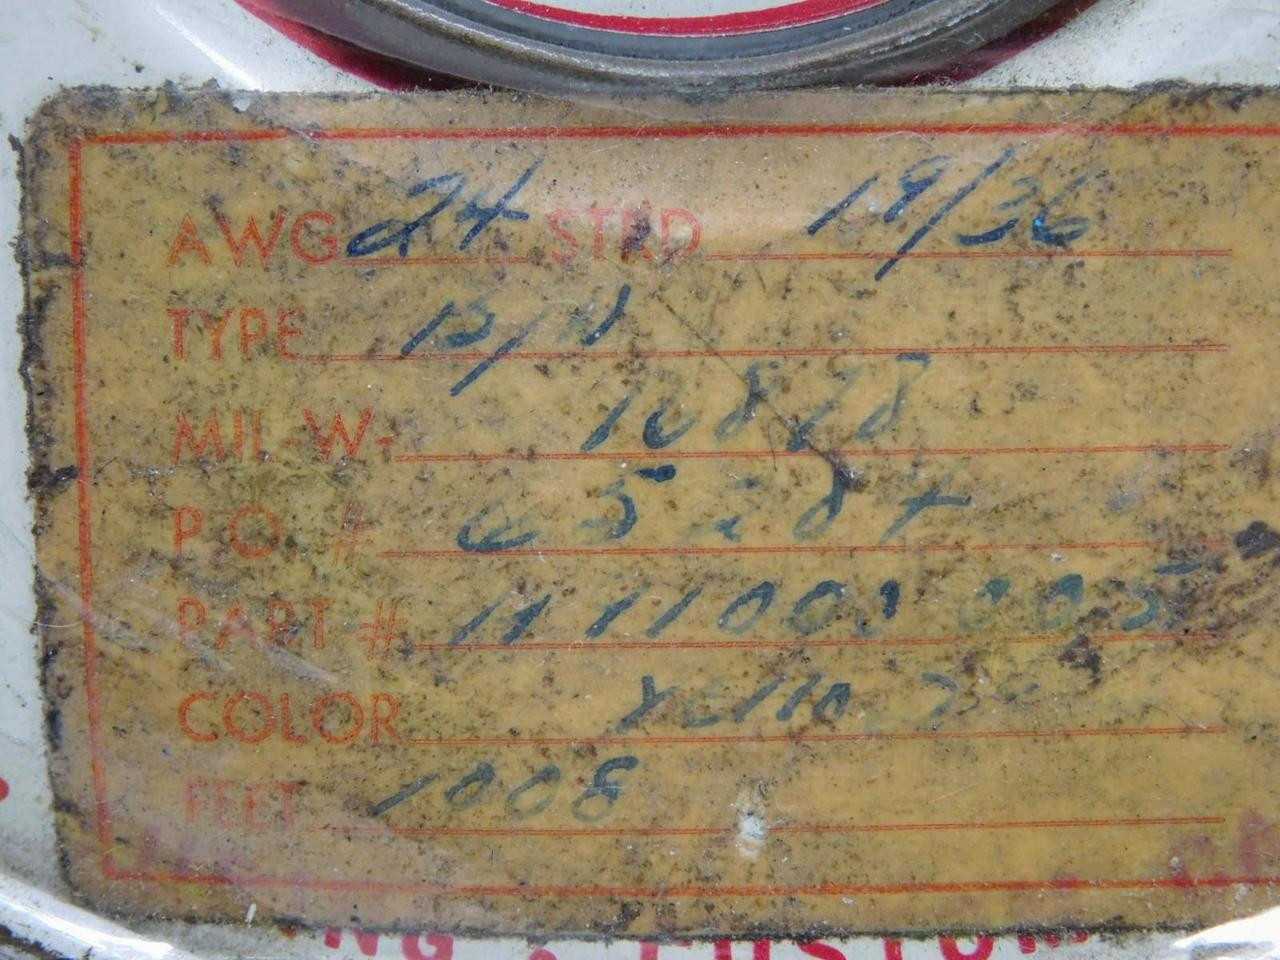 AWG 24 STRD 19/36
TYPE B/N
MIL-W- 16878
P.O. #
PART # 1111001005
COLOR Yellow
FEET 1008
NG & CUSTOM